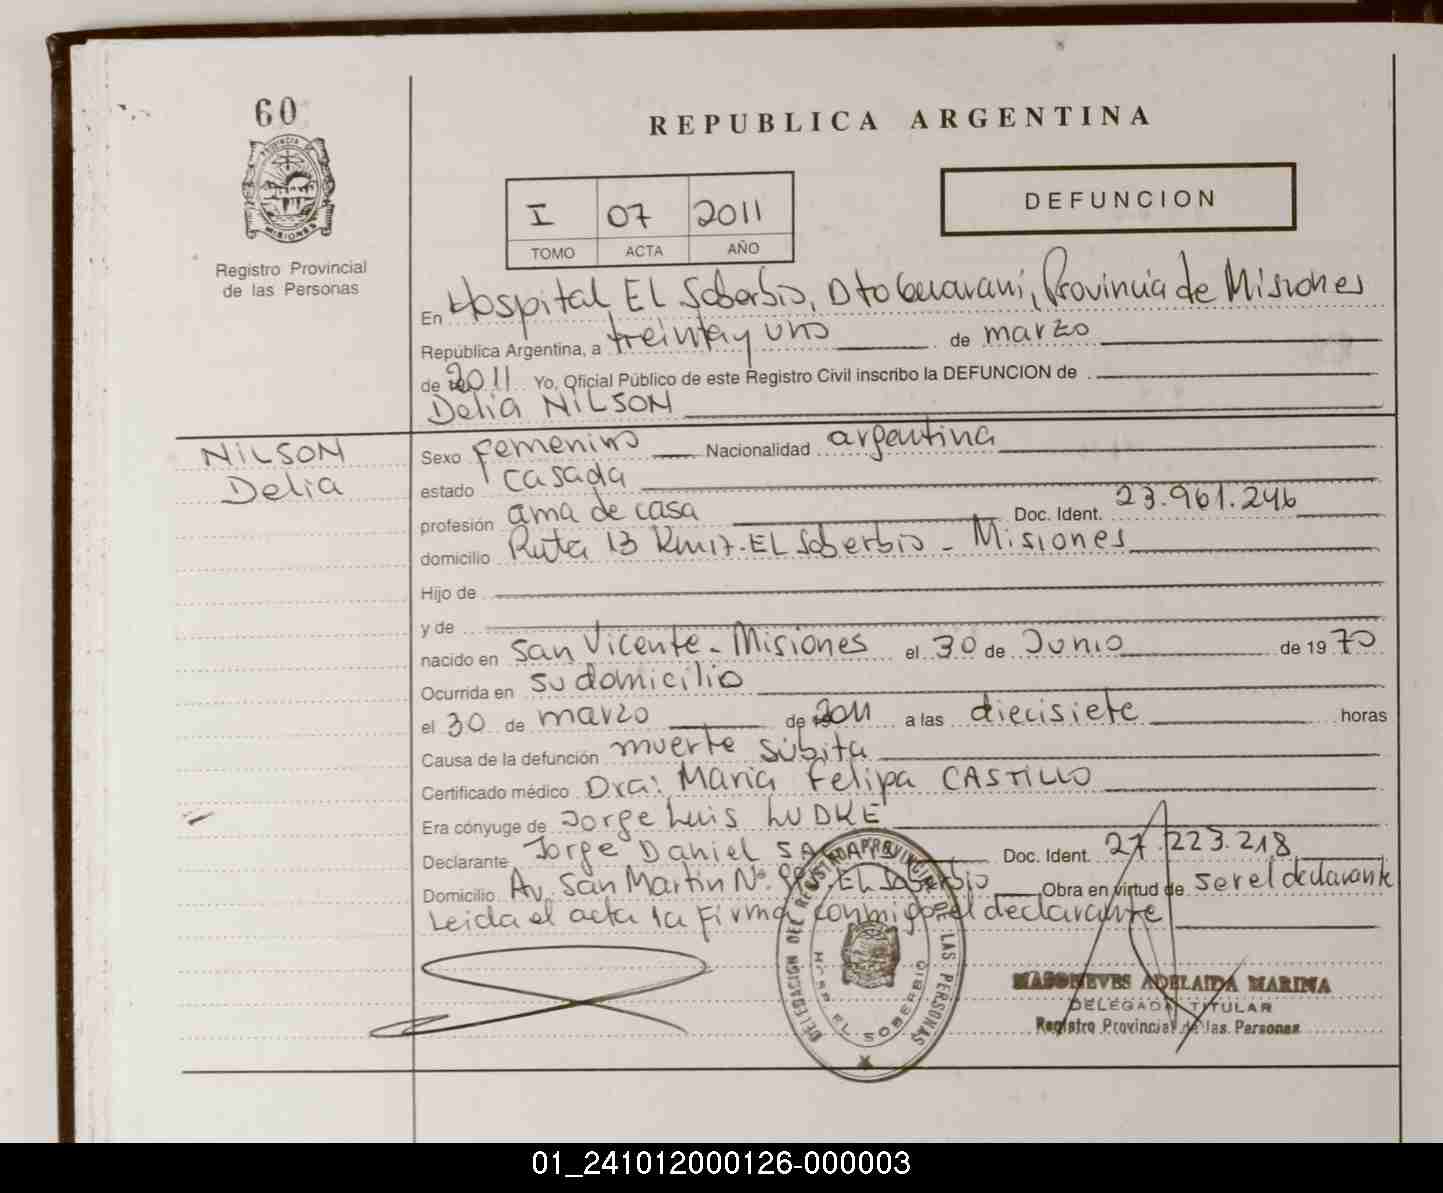 60
REPUBLICA ARGENTINA
DEFUNCION
I 07 2011
TOMO ACTA AÑO
PROVINCIA DE MISIONES
Registro Provincial
de las Personas
En Hospital EL Soberbio, Dto Guarani, Provincia de Misiones
República Argentina, a treinta y uno de marzo
de 2011 Yo, Oficial Público de este Registro Civil inscribo la DEFUNCION de
Delia NILSON
NILSON
Delia
Sexo femenino Nacionalidad argentina
estado casada
profesión ama de casa Doc. Ident. 23.961.246
domicilio Ruta 13 Km 17 - EL Soberbio - Misiones
Hijo de
y de
nacido en San Vicente - Misiones el 30 de Junio de 1970
Ocurrida en su domicilio
el 30 de marzo de 2011 a las diecisiete horas
Causa de la defunción muerte súbita
Certificado médico Dra: Maria Felipa CASTILLO
Era cónyuge de Jorge Luis LUDKE
Declarante Jorge Daniel Doc. Ident. 27.223.218
Domicilio Av. San Martin Nº. EL Soberbio Obra en virtud de ser el declarante
Leida el acta la firma conmigo el declarante
DELEGACION DEL REGISTRO PROVINCIAL DE LAS PERSONAS
HOSP. EL SOBERBIO
ADELAIDA MARINA
DELEGADA TITULAR
Registro Provincial de las Personas
01_241012000126-000003